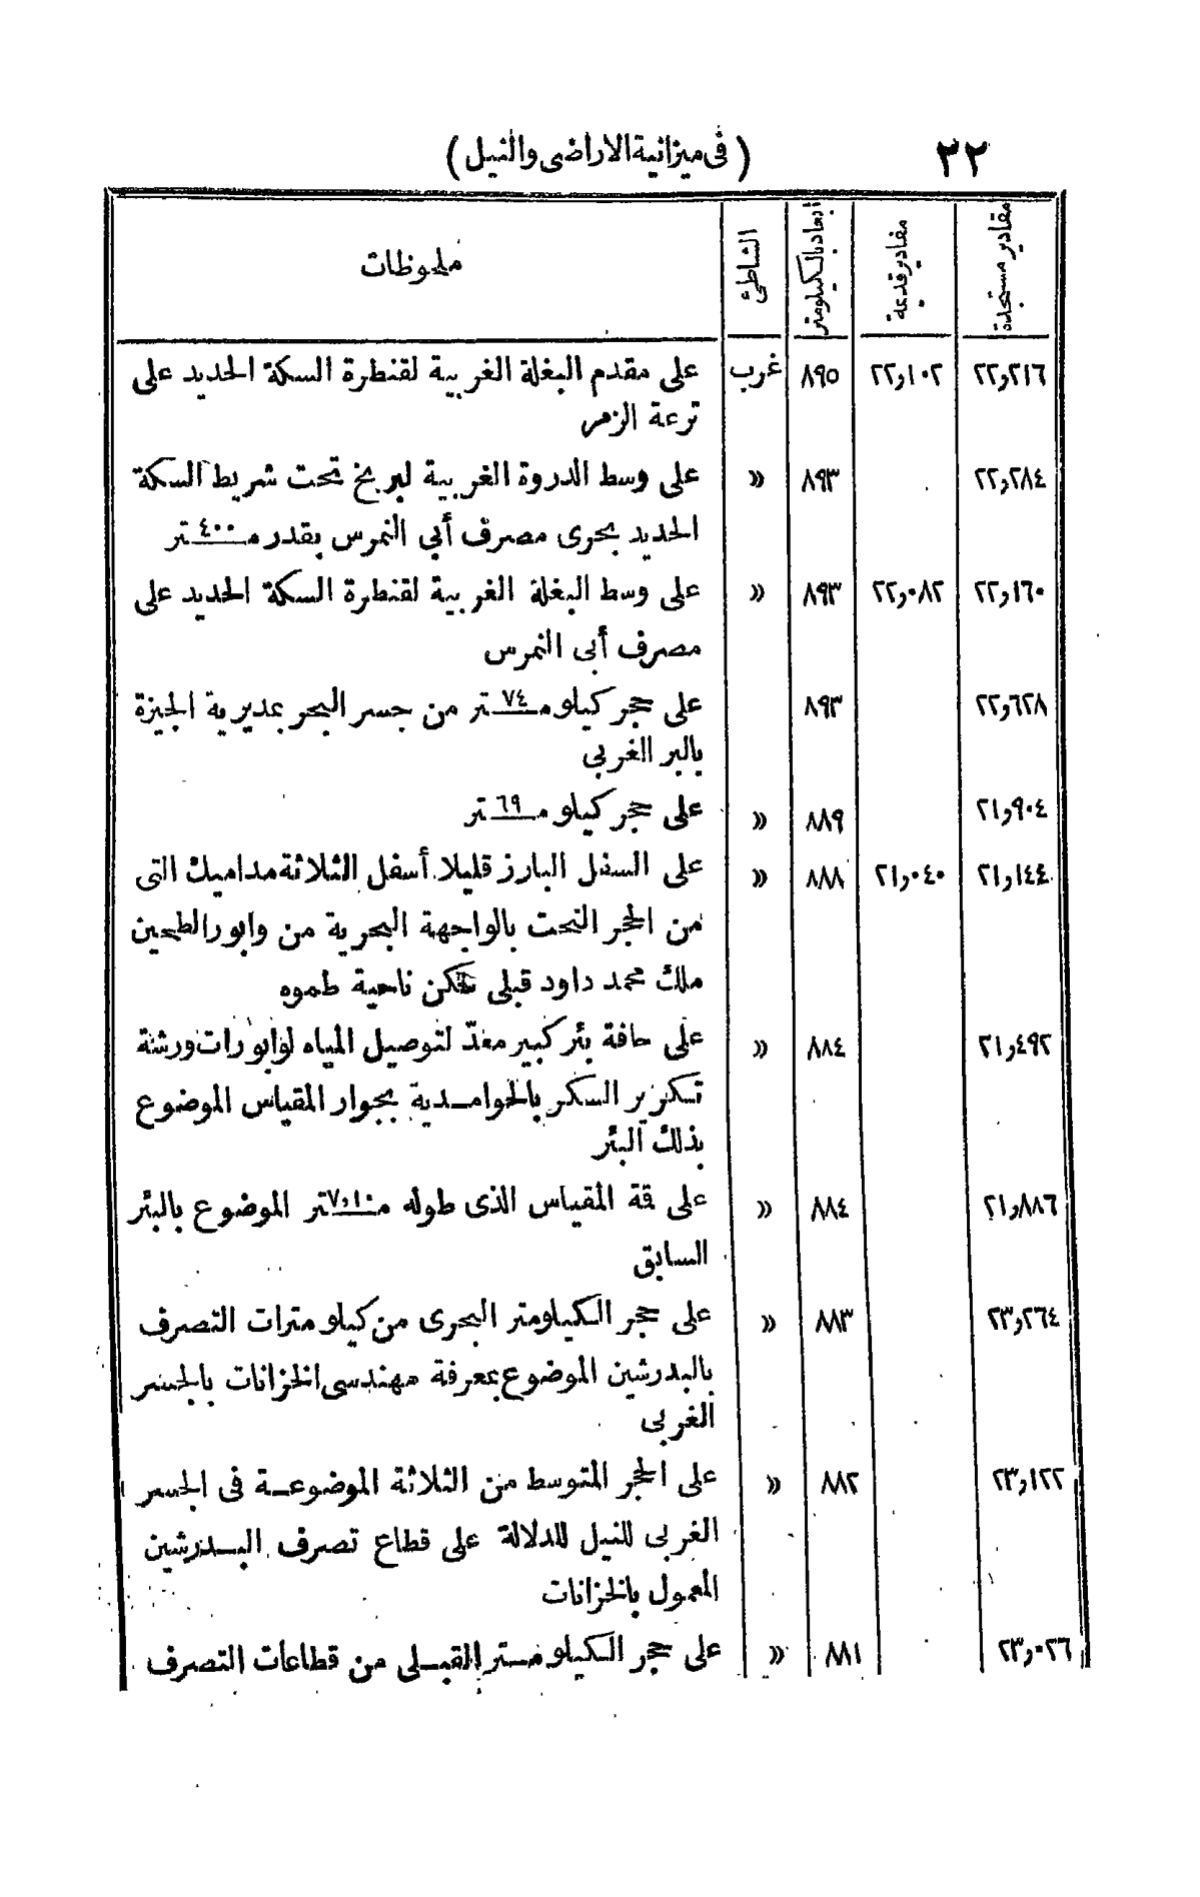 ٢٢ (فى ميزانية الاراضى والنيل)
مقادير مستجدة مقادير قديمة أبعاد بالكيلومتر الشاطئ ملحوظات
٢٢٫٢١٦ ٢٢٫١٠٢ ٨٩٥ غرب على مقدم البغلة الغربية لقنطرة السكة الحديد على
ترعة الزمر
٢٢٫٢٨٤ ٨٩٣ » على وسط الدروة الغربية لبربخ تحت شريط السكة
الحديد بحرى مصرف أبى النمرس بقدر ٤٠٠ متر
٢٢٫١٦٠ ٢٢٫٠٨٢ ٨٩٣ » على وسط البغلة الغربية لقنطرة السكة الحديد على
مصرف أبى النمرس
٢٢٫٦٢٨ ٨٩٣ على حجر كيلو ٧٤ متر من جسر البحر بمديرية الجيزة
بالبر الغربى
٢١٫٩٠٤ ٨٨٩ » على حجر كيلو ٦٩ متر
٢١٫١٤٤ ٢١٫٠٤٠ ٨٨٨ » على السفل البارز قليلا أسفل الثلاثة مداميك التى
من الحجر النحت بالواجهة البحرية من وابور الطحين
ملك محمد داود قبلى سكن ناحية طموه
٢١٫٤٩٢ ٨٨٤ » على حافة بئر كبير معدّ لتوصيل المياه لوابورات ورشة
تكرير السكر بالحوامدية بجوار المقياس الموضوع
بذلك البئر
٢١٫٨٨٦ ٨٨٤ » على قة المقياس الذى طوله ٧٫١٠ متر الموضوع بالبئر
السابق
٢٣٫٢٦٤ ٨٨٣ » على حجر الكيلومتر البحرى من كيلو مترات التصرف
بالبدرشين الموضوع بمعرفة مهندسى الخزانات بالجسر
الغربى
٢٣٫١٢٢ ٨٨٢ » على الحجر المتوسط من الثلاثة الموضوعة فى الجسر
الغربى للنيل للدلالة على قطاع تصرف البدرشين
المعمول بالخزانات
٢٣٫٠٢٦ ٨٨١ » على حجر الكيلو متر القبلى من قطاعات التصرف